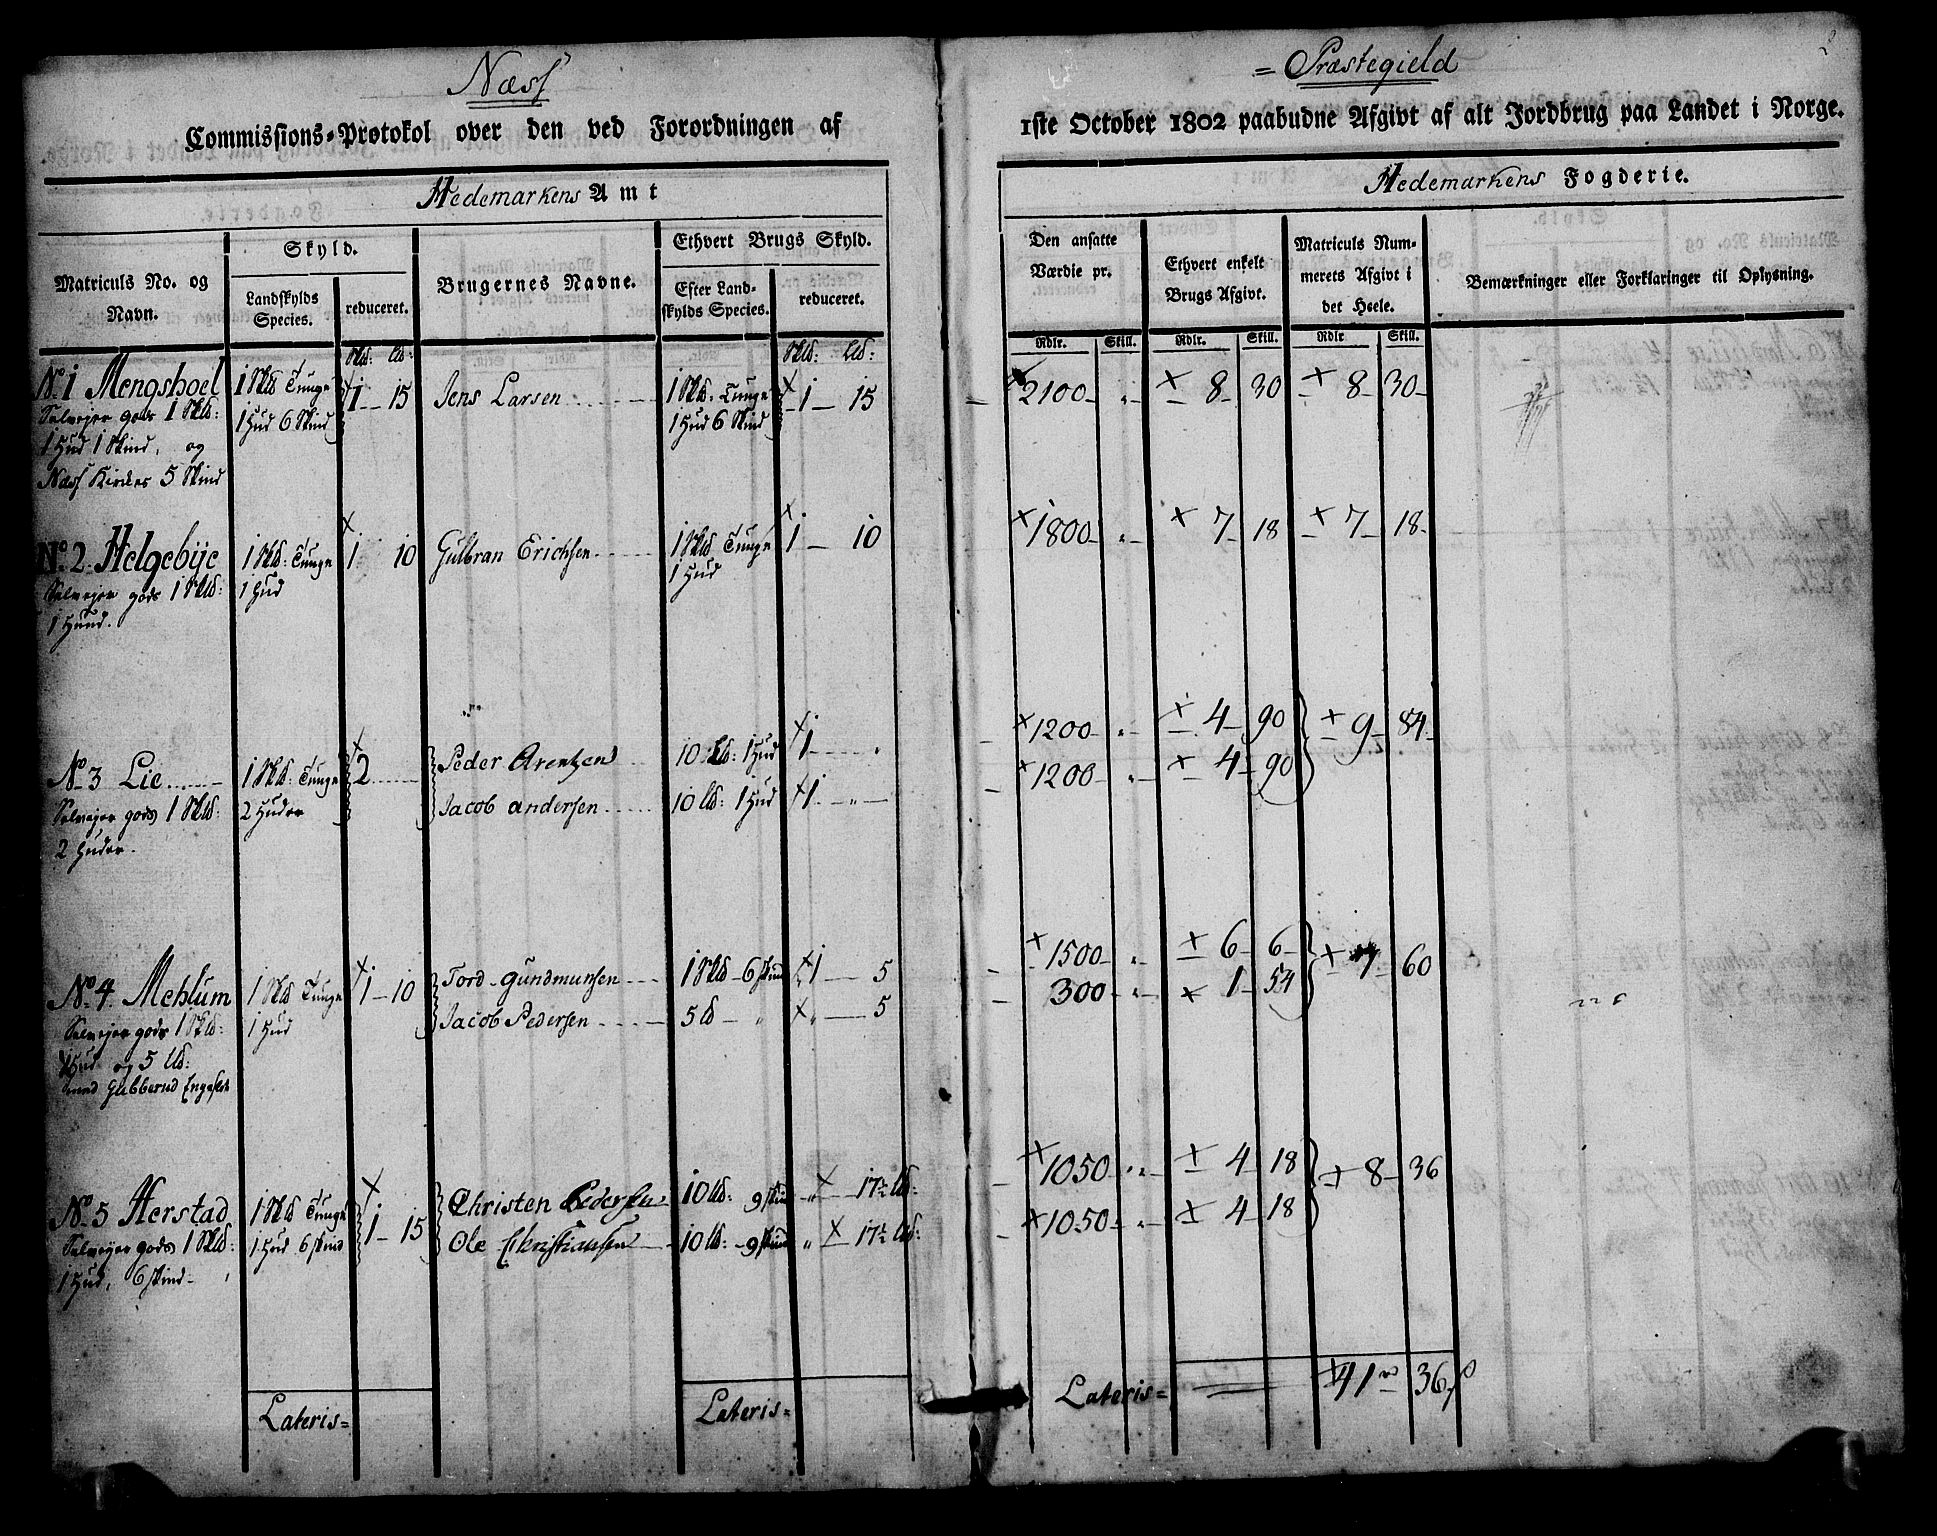 Næss
= Præstegield
2
Commissions-Protokol over den ved Forordningen af
1ste October 1802 paabudne Afgivt af alt Jordbrug paa Landet i Norge.
Hedemarkens Amt
Hedemarkens Fogderie.
Matriculs No. og Navn.
Skyld.
Landskylds Species.
reduceret.
Brugernes Navne.
Ethvert Brugs Skyld.
Efter Landskylds Species.
reduceret.
Den ansatte Værdie pr.
Ethvert enkelt Brugs Afgivt.
Matriculs Nummerets Afgivt i det Heele.
Bemærkninger eller Forklaringer til Oplysning.
Rdlr. Skill. Rdlr. Skill. Rdlr Skill.
Skld: Ld: Skld: Ld:
No. 1 Mengshoel 1 Skld: Tunge 1 — 15 Jens Larsen 1 Skld. Tunge 1 — 15 2100 " 8 30 8 30
Selveier gods 1 Skld: 1 Hud 6 Skind 1 Hud 6 Skind
1 Hud 1 Skind, og
Næss Kirkes 5 Skind
No. 2 Helgebÿe 1 Skld: Tunge 1 10 Gulbran Erichsen 1 Skld Tunge 1 — 10 1800 " 7 18 7 18
Selveier gods 1 Skld: 1 Hud 1 Hud
1 Hud.
No. 3 Lie 1 Skld: Tunge 2 Peder Arentzen 10 Ld: 1 Hud 1 " 1200 " 4 90 9 84
Selveier gods 1 Skld: 2 Huder Jacob Andersen 10 Ld: 1 Hud 1 " 1200 " 4 90
2 Huder.
No. 4 Mehlum 1 Skld Tunge 1 — 10 Tord Gundmunsen 1 Skld — 6 Skind 1 — 5 1500 " 6 6 7 60
Selveier gods 1 Skld: 1 Hud Jacob Pedersen 5 Ld — " " — 5 300 " 1 54
1 Hud og 5 Ld:
med Gubberud Engeslet
No. 5 Herstad 1 Skld Tunge 1 — 15 Christen Pedersen 10 Ld: 9 Skind " — 17½ Ld: 1050 " 4 18 8 36
Selveier gods 1 Skld: 1 Hud 6 Skind Ole Christiansen 10 Ld: 9 Skind " — 17½ Ld: 1050 " 4 18
1 Hud, 6 Skind
Lateris = Lateris = Lateris = 41 36